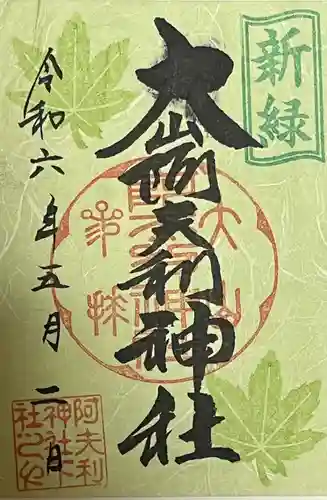 新緑
大山阿夫利神社
令和六年五月二日
阿夫利
神社
社之